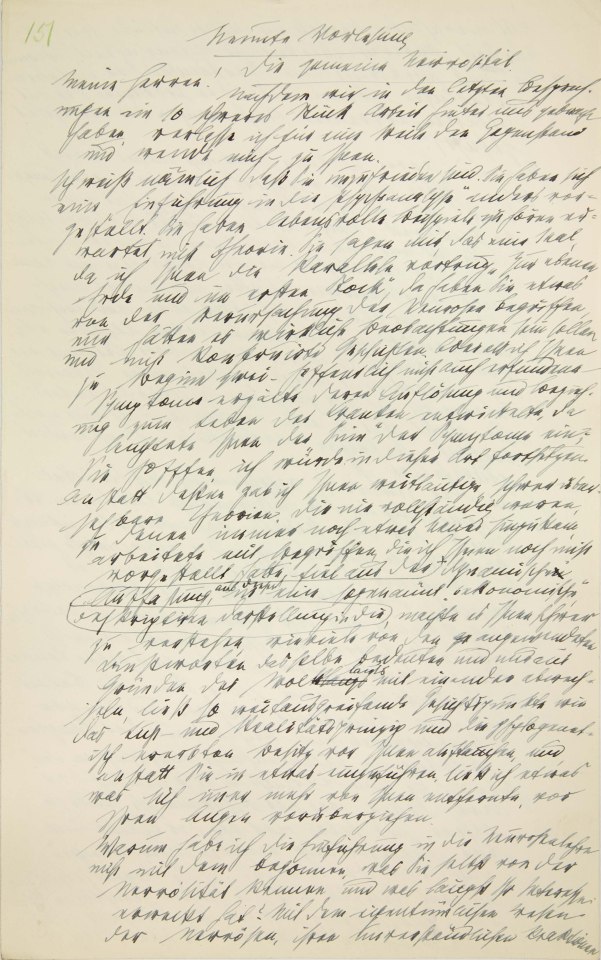 151
Neunte Vorlesung
Die gemeine Nervosität
Meine Herren! Nachdem wir in den letzten Besprech-
ungen ein so schweres Stück Arbeit hinter uns gebracht
haben, verlasse ich für eine Weile den Gegenstand
und wende mich zu Ihnen.
Ich weiß nämlich daß Sie unzufrieden sind. Sie haben sich
eine Einführung in die Psychoanalyse anders vor-
gestellt. Sie haben lebensvolle Beispiele zu hören er-
wartet, nicht Theorie. Sie sagen mir das eine Mal,
da ich Ihnen die Parallele vortrug „Zu ebener
Erde und im ersten Stock", da haben Sie etwas
von der Verursachung der Neurosen begriffen,
nur hätten es wirkliche Beobachtungen sein sollen
und nicht konstruirte Geschichten. Oder als ich Ihnen
zu Beginn zwei – hoffentlich nicht auch erfundene
Symptome erzälte deren Auflösung und Bezieh-
ung zum Leben der Kranken entwickelte, da
leuchtete Ihnen der Sinn der Symptome ein;
Sie hofften, ich würde in dieser Art fortsetzen.
Anstatt dessen gab ich Ihnen weitläufige, schwer über-
sehbare Theorien, die nie vollständig waren,
zu denen immer noch etwas Neues hinzukam,
arbeitete mit Begriffen, die ich Ihnen noch nicht
vorgestellt hatte, fiel aus der dynamischen
Auffassung, aus dieser in eine sogenannte ökonomische
deskriptiven Darstellung in die, machte es Ihnen schwer
zu verstehen wieviele von den angewendeten
Kunstworten dasselbe bedeuten und nur aus
Gründen des Wohllauts mit einander abwech-
seln, ließ so weitausgreifende Gesichtspunkte wie
das Lust- und Realitätsprinzip und den phylogenet-
isch ererbten Besitz vor Ihnen auftauchen, und
anstatt Sie in etwas einzuführen, ließ ich etwas
was sich immer mehr von Ihnen entfernte, vor
Ihren Augen vorüberziehen.
Warum habe ich die Einführung in die Neurosenlehre
nicht mit dem begonnen, was Sie selbst von der
Nervosität kennen und was längst Ihr Interesse
erweckt hat? Mit dem eigentümlichen Wesen
der Nervösen, ihren unverständlichen Reaktionen